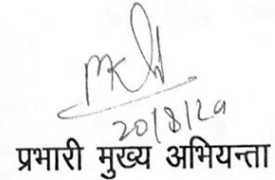 20/8/29
प्रभारी मुख्य अभियन्ता